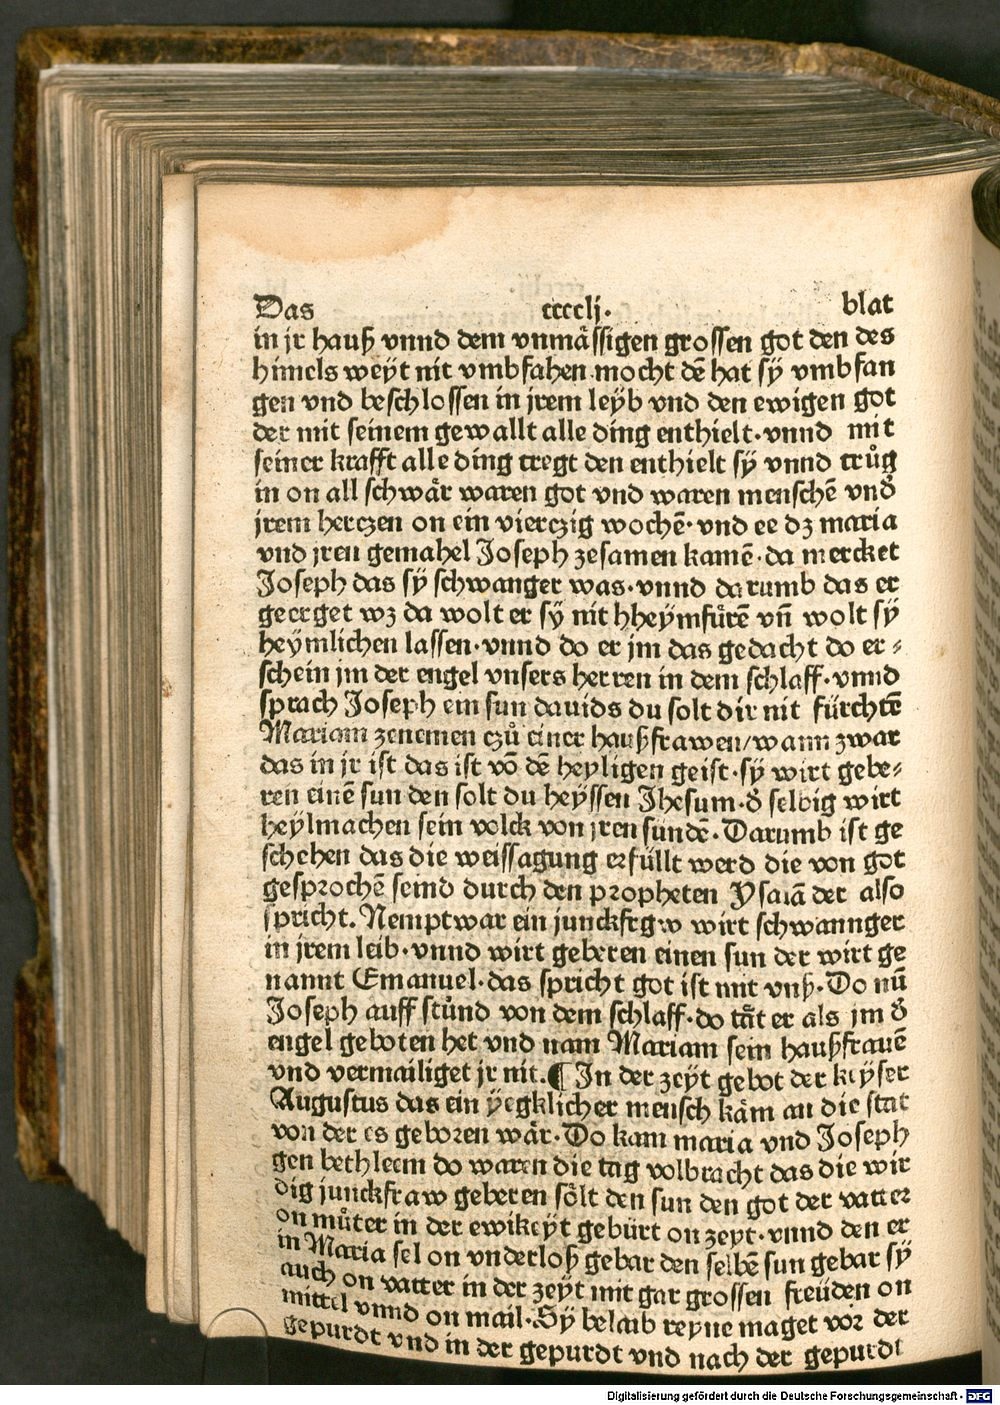 Das cccclj. blat
in jr hauß vnnd dem vnmässigen grossen got den des
himels weÿt nit vmbfahen mocht dē hat sÿ vmbfan
gen vnd beschlossen in jrem leÿb vnd den ewigen got
der mit seinem gewallt alle ding enthielt·vnnd mit
seiner krafft alle ding tregt den enthielt sÿ vnnd trůg
in on all schwär waren got vnd waren menschē vnd̕
jrem herczen on ein vierczig wochē·vnd ee dz maria
vnd jren gemahel Joseph zesamen kamē·da mercket
Joseph das sÿ schwanger was·vnnd darumb das er
gecrget wz da wolt er sÿ nit hheymfürē vn̄ wolt sÿ
heÿmlichen lassen·vnnd do er jm das gedacht do er⸗
schein jm der engel vnsers herren in dem schlaff·vnnd
sprach Joseph ein sun dauids du solt dir nit fürchtē
Mariam zenemen czů einer haußfrawen/wann zwar
das in jr ist das ist vō dē heyligen geist·sÿ wirt gebe⸗
ren einē sun den solt du heÿssen Jhesum·d̕ selbig wirt
heÿlmachen sein volck von jren sündē·Darumb ist ge
schehen das die weissagung erfüllt werd die von got
gesprochē seind durch den propheten Ysaiā der also
spricht.Nemptwar ein junckfraw wirt schwannger
in jrem leib·vnnd wirt geberen einen sun der wirt ge
nannt Emanuel·das spricht got ist mit vnß·Do nū
Joseph auff stůnd von dem schlaff·do tät er als jm d̕
engel geboten het vnd nam Mariam sein haußfrauē
vnd vermailiget jr nit.¶ In der zeÿt gebot der keÿser
Augustus das ein ÿegklicher mensch käm an die stat
von der es geboren wär·Do kam maria vnd Joseph
gen bethleem do waren die tag volbracht das die wir
dig junckfraw geberen sölt den sun den got der vatter
on můter in der ewikeÿt gebürt on zeyt·vnnd den er
in Maria sel on vnderloß gebar den selbē sun gebar sÿ
auch on vatter in der zeÿt mit gar grossen freüden on
mittel vnnd on mail·Sÿ belaib reyne maget vor der
gepurdt vnd in der gepurdt vnd nach der gepurdt
Digitalisierung gefördert durch die Deutsche Forschungsgemeinschaft - DFG